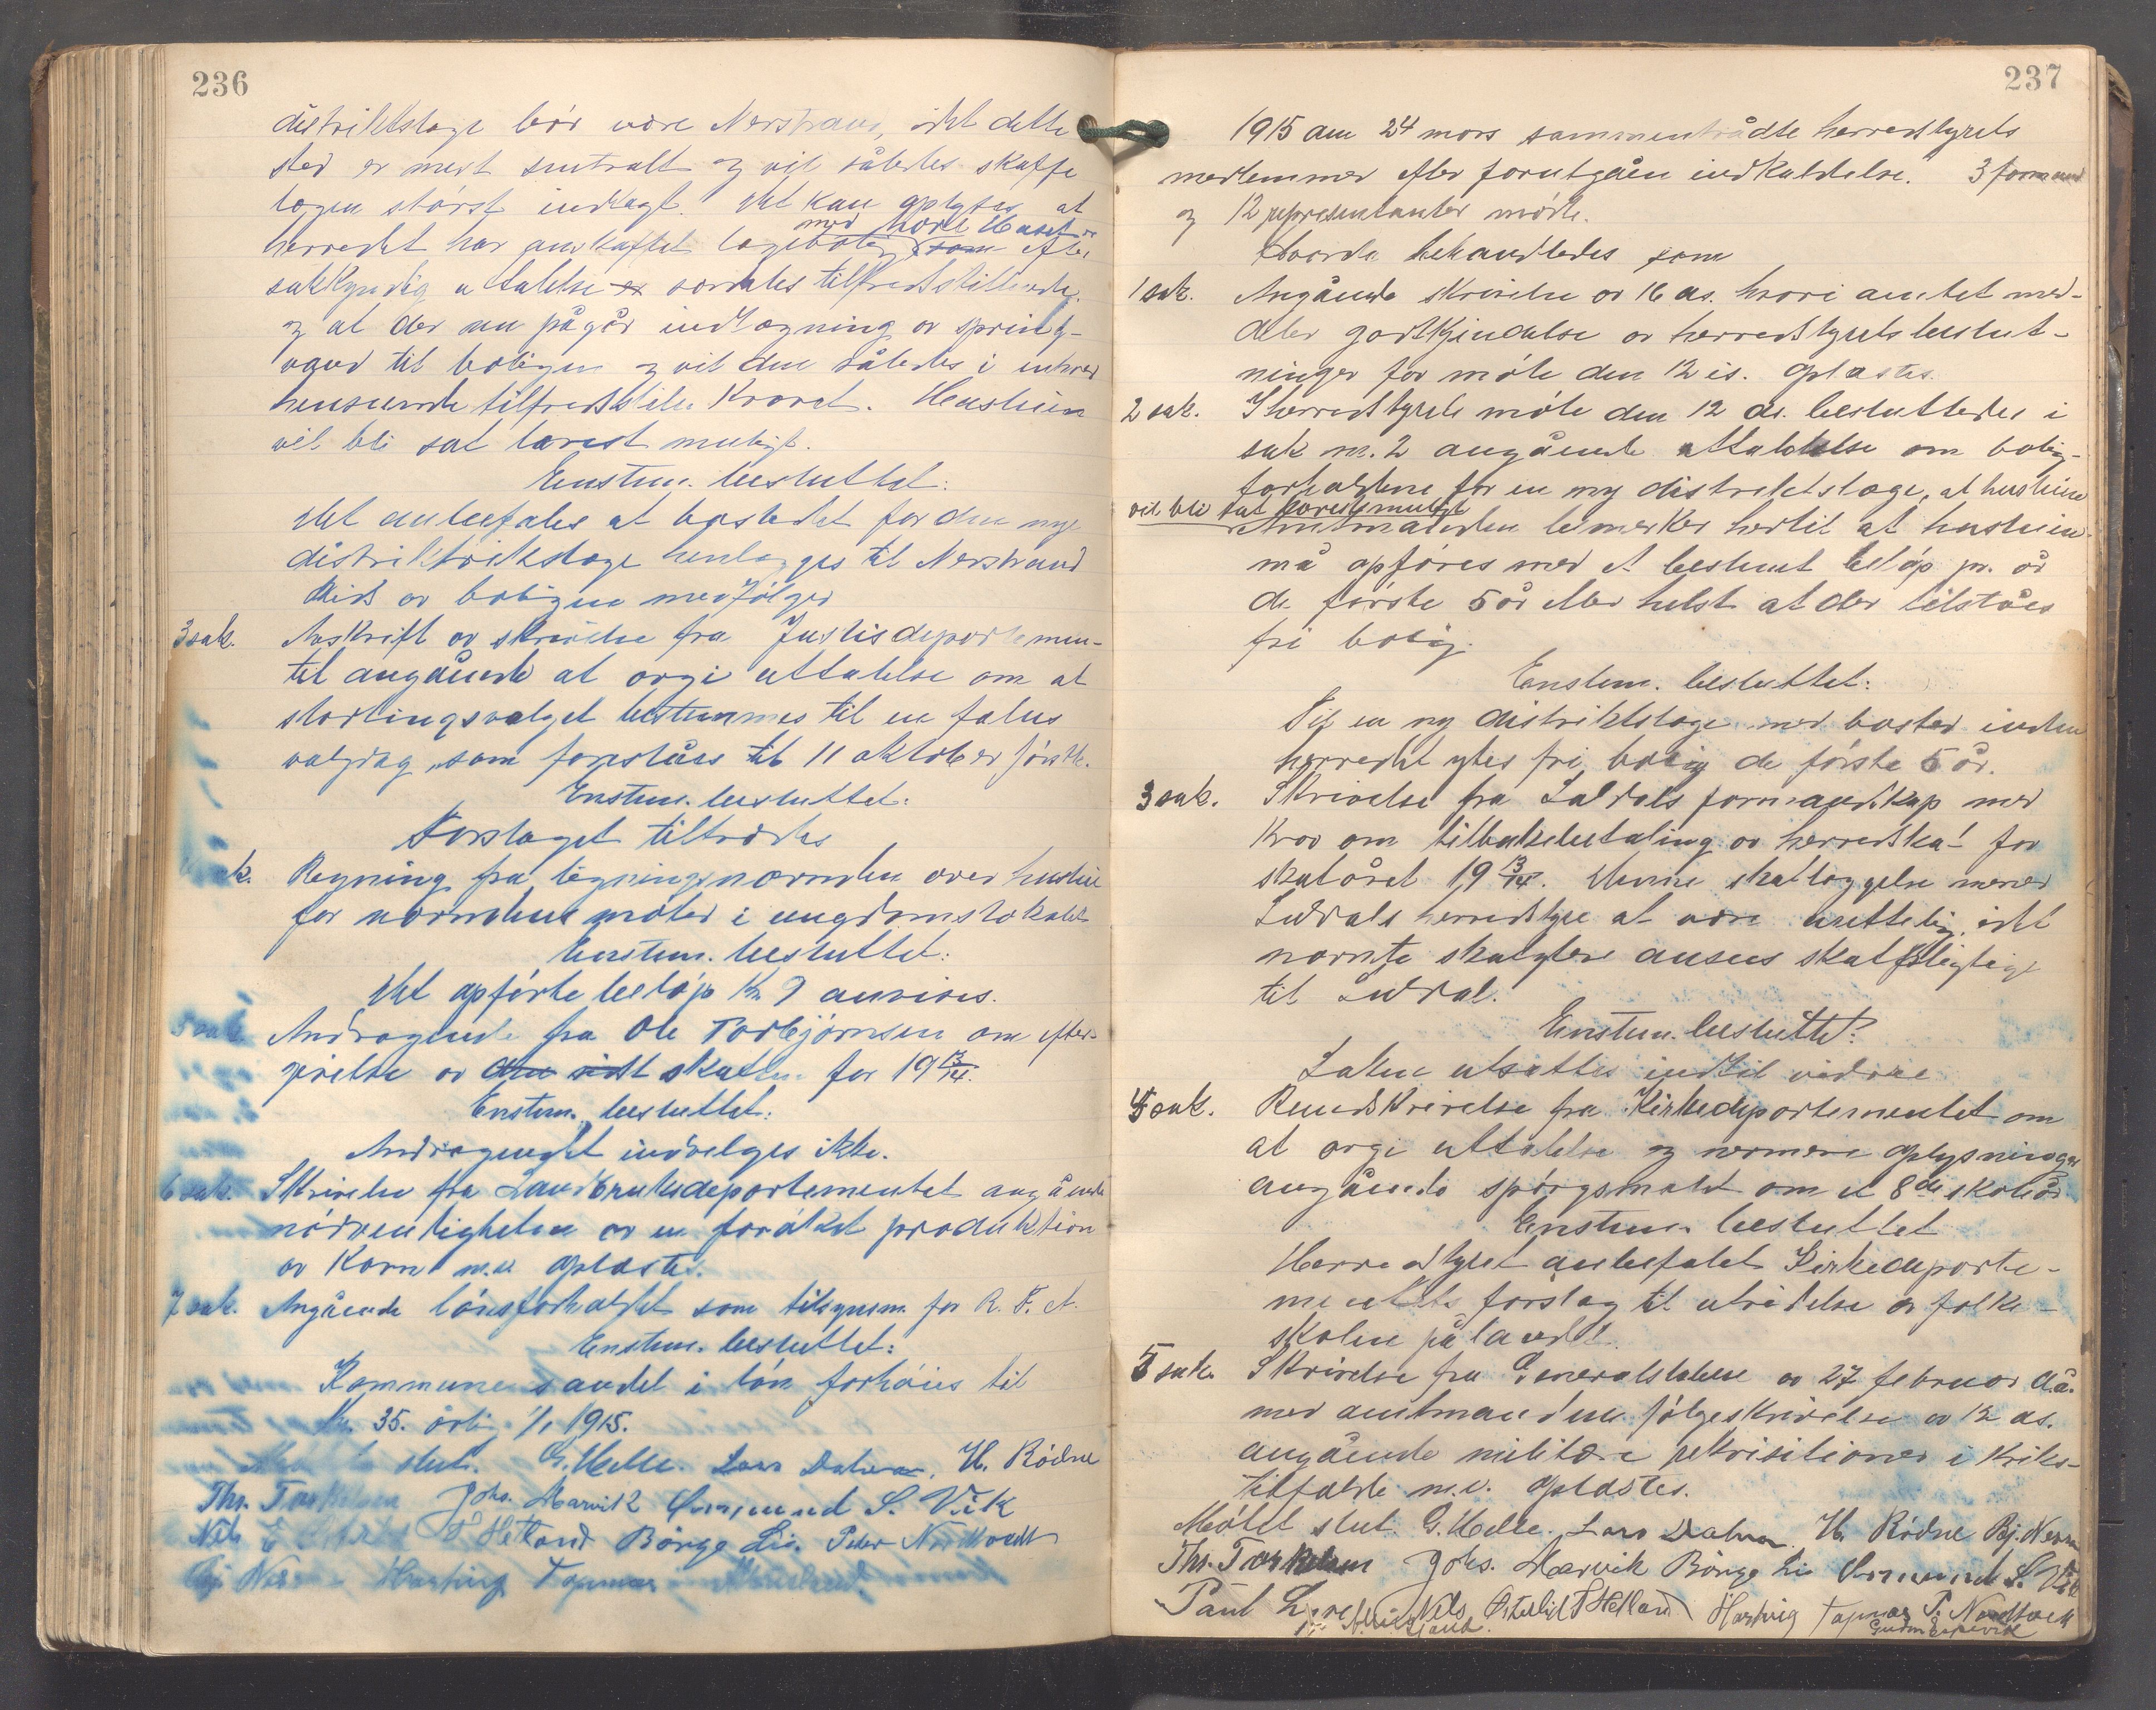 236
distriktslæge bör være Nerstrand, idet dette
sted er mest sentralt og vil således skaffe
lægen störst indtægt. Det kan oplyses at
herredet har anskaffet lægebolig som efter
med hörl. Huset er
sakkyndig uttalelse er særdeles tilfredsstillende.
og at der nu pågår indlægning av spring-
vand til boligen og vil den således i enhver
henseende tilfredsstille kravet. Husleien
vil bli sat lavest mulig.
Enstem. besluttet:
Det anbefales at bostedet for den nye
distriktslæge henlægges til Nerstrand
Rids av boligen medfölger
3 sak. Avskrift av skrivelse fra Justisdepartemen-
tet angående at avgi uttalelse om at
stortingsvalget bestemmes til en fælles
valgdag, som foreslåes til 11 oktober förstk.
Enstem. besluttet:
Forslaget tiltrædes
sak. Regning fra ligningsnævnden over husleie
for nævndens möter i ungdomslokalet
Enstem. besluttet:
Det opförte belöp Kr 9 anvises.
5 sak. Andragende fra Ole Torbjörnsen om efter-
givelse av den sidst skatten for 19 13/14.
Enstem. besluttet:
Andragendet indvelges ikke.
6 sak. Skrivelse fra Landbruksdepartementet angående
nödvendigheten av en foröket produktion
av Korn m.v. oplæstes.
7 sak. Angående lönsforholdet som tilsynsm. for R. T. A.
Enstem. besluttet:
Kommunens andel i lön forhöies til
Kr. 35. årlig 1/1 1915.
Mötet slut. G. Helle. Lars Dalva. H. Rödne
Ths. Torkelsen Johs. Marvik Ommund S. Vik
Nels Østerhus T Hetland Börge Lie. Peder Nordtvedt
Bj. Nærem Hartvig Topnæs
237
1915 den 24 mars sammentrådte herredstyrets
medlemmer efter forutgåen indkaldelse. 3 formænd
og 12 representanter mötte.
Hvorda behandledes som
1 sak. Angående skrivelse av 16 ds. hvori amtet med-
deler godkjendelse av herredstyrets beslut-
ninger for möte den 12 is. oplæstes.
2 sak. I herredstyrets möte den 12 ds. besluttedes i
sak nr. 2 angående uttalelse om bolig-
forholdene for en ny distriktslæge, at husleien
vil bli sat lavest mulig
Amtmanden bemerker hertil at husleien
må opföres med et bestemt belöp pr. år
de förste 5 år eller helst at der tilståes
fri bolig.
Enstem. besluttet:
Til en ny distriktslæge med bosted inden
herredet ytes fri bolig de förste 5 år.
3 sak. Skrivelse fra Suldals formandskap med
krav om tilbakebetaling av herredskat for
skatåret 19 13/14. Denne skatlæggelse mener
Suldals herredstyre at være urettelig, idet
nævnte skatytere ansees skatpligtige
til Suldal.
Enstem. besluttet:
Saken utsættes indtil videre
4 sak. Rundskrivelse fra Kirkedepartementet om
at avgi uttalelse og nærmere oplysninger
angående spörgsmålet om et 8de skoleår
Enstem. besluttet
Herredstyret anbefalet Kirkedeparte-
mentets forslag til utvidelse av folke-
skolen på landet.
5 sak. Skrivelse fra Generalstaben av 27 februar d.å.
med amtmandens fölgeskrivelse av 12 ds.
angående militære rekvisitioner i krigs-
tilfælde m.v. oplæstes.
Mötet slut. G. Helle. Lars Dalva. H. Rödne Bj. Nærem
Ths. Torkelsen Johs. Marvik Börge Lie Ommund S. Vik
Paul Nels Østerhus T Hetland Hartvig Topnæs P. Nordtvedt